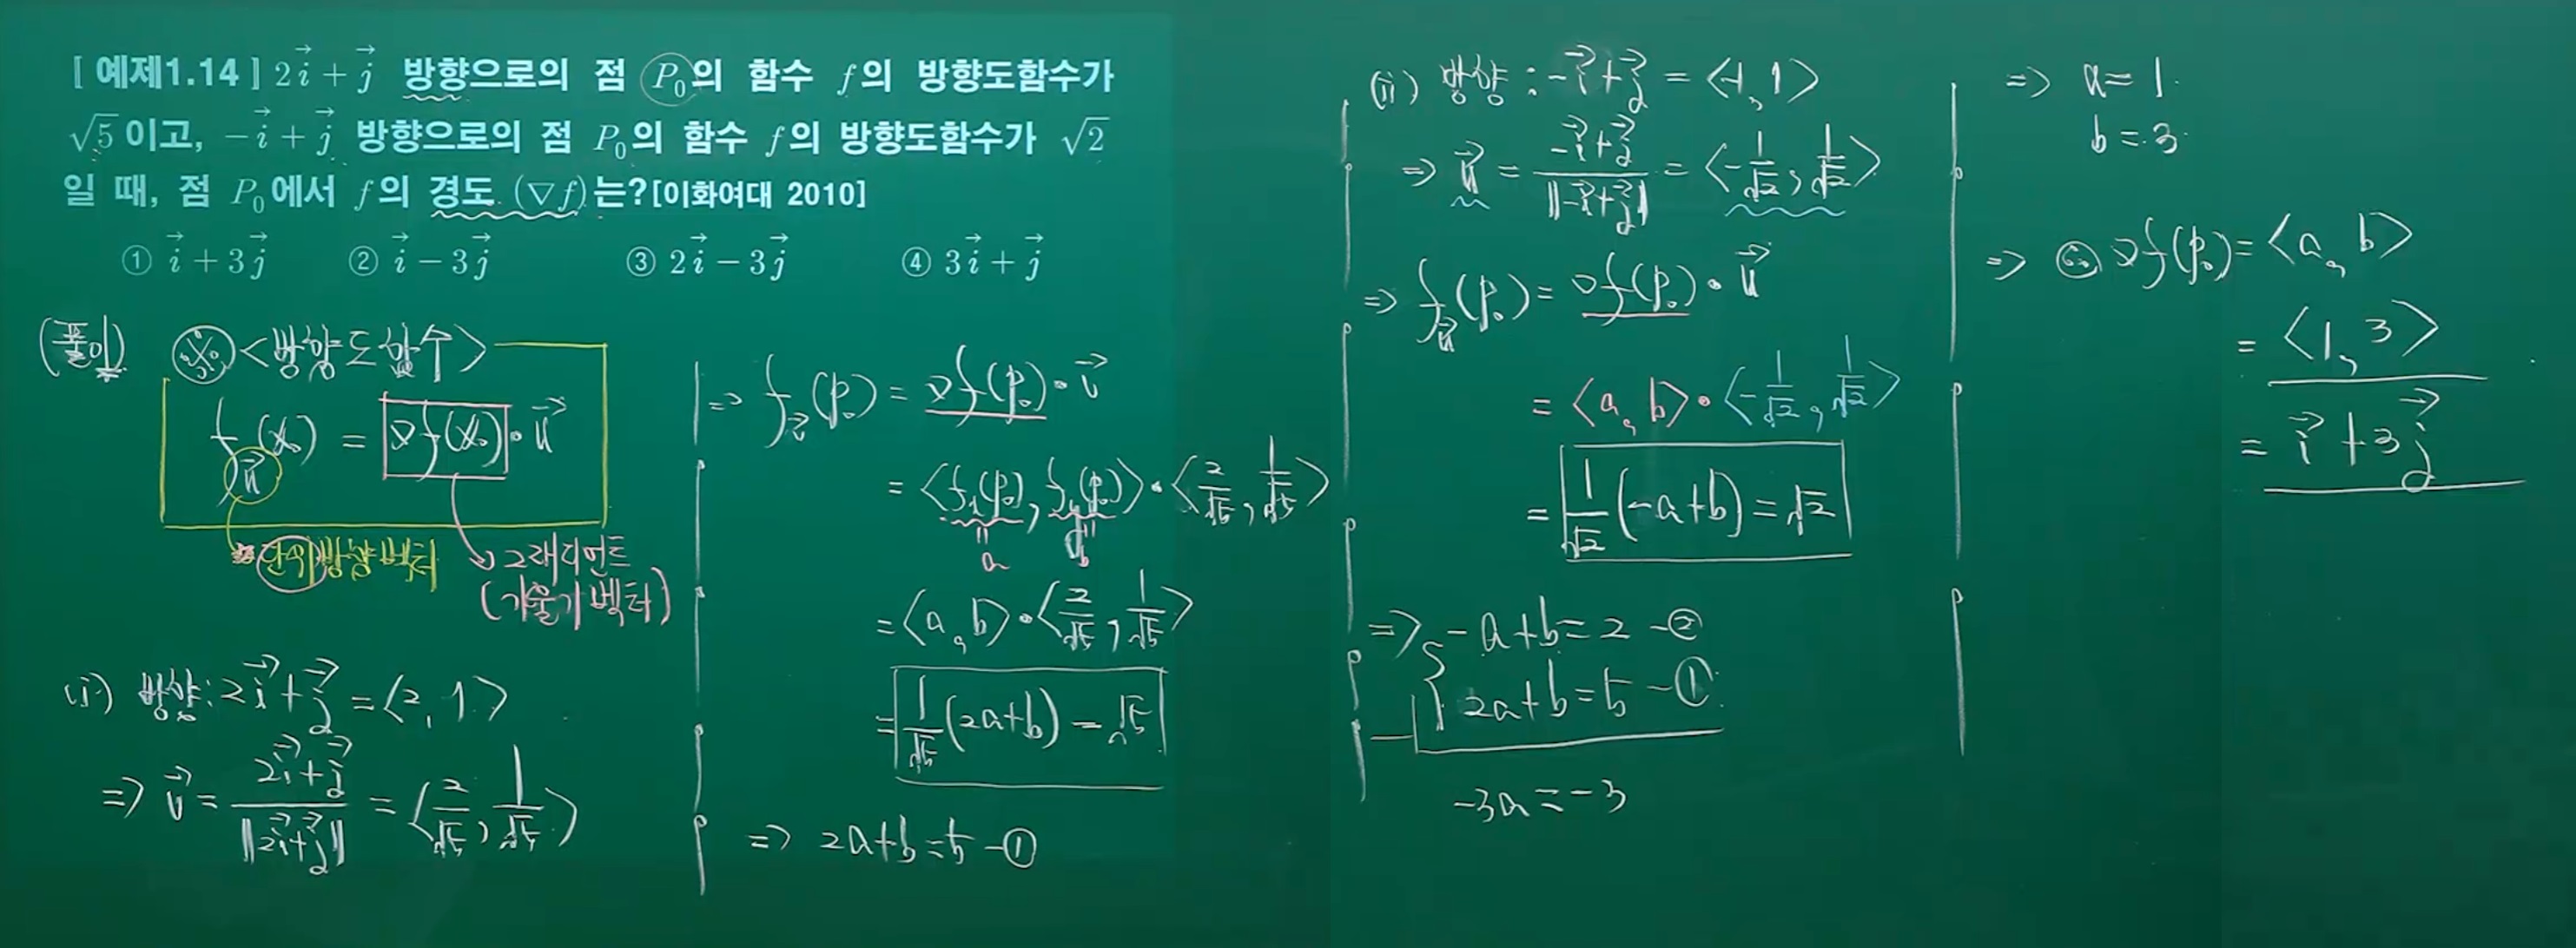 [ 예제1.14 ] 2i⃗ + j⃗ 방향으로의 점 P₀의 함수 f의 방향도함수가
√5 이고, −i⃗ + j⃗ 방향으로의 점 P₀의 함수 f의 방향도함수가 √2
일 때, 점 P₀에서 f의 경도 (∇f)는?[이화여대 2010]
① i⃗ + 3j⃗ ② i⃗ − 3j⃗ ③ 2i⃗ − 3j⃗ ④ 3i⃗ + j⃗
(풀이) <방향도함수>
f_u⃗(x₀) = ∇f(x₀)·u⃗
단위방향벡터
그래디언트
(기울기벡터)
(i) 방향: 2i⃗+j⃗ = <2, 1>
=> v⃗ = (2i⃗+j⃗)/‖2i⃗+j⃗‖ = <2/√5, 1/√5>
=> f_v⃗(p₀) = ∇f(p₀)·v⃗
= <f_x(p₀), f_y(p₀)>·<2/√5, 1/√5>
" "
a b
= <a, b>·<2/√5, 1/√5>
= 1/√5(2a+b) = √5
=> 2a+b=5 -①
(ii) 방향: -i⃗+j⃗ = <-1, 1>
=> u⃗ = (-i⃗+j⃗)/‖-i⃗+j⃗‖ = <-1/√2, 1/√2>
=> f_u⃗(p₀) = ∇f(p₀)·u⃗
= <a, b>·<-1/√2, 1/√2>
= 1/√2(-a+b) = √2
=> -a+b=2 -②
2a+b=5 -①
-3a=-3
=> a=1.
b=3.
=> ∇f(p₀) = <a, b>
= <1, 3>
= i⃗+3j⃗